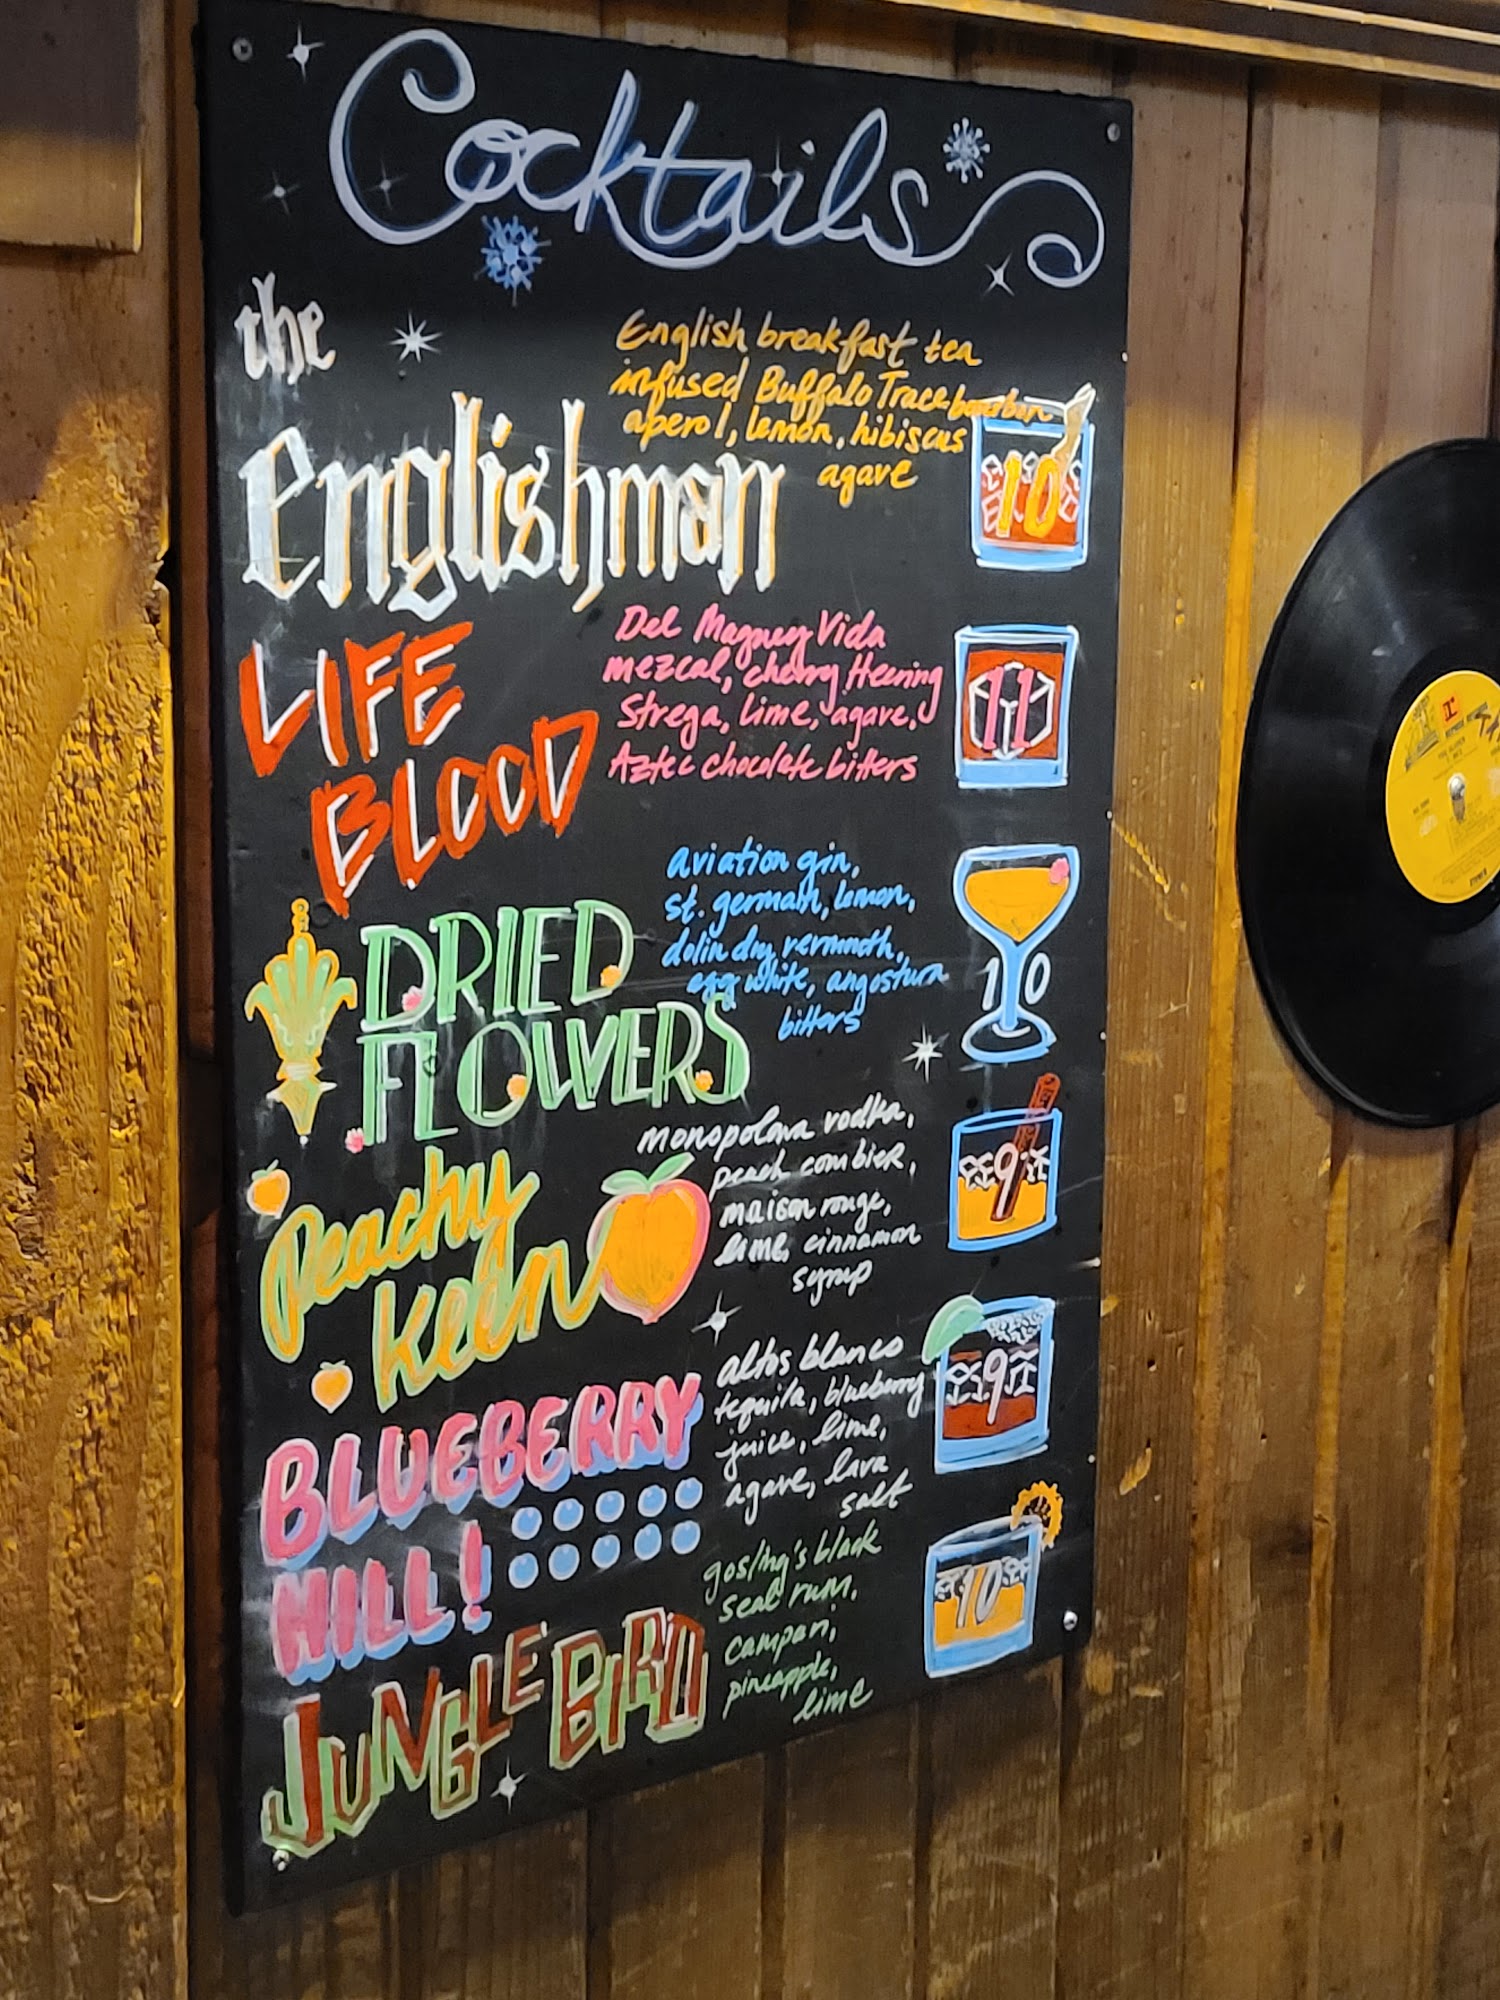 Cocktails
the
englishman
English breakfast tea
infused Buffalo Trace bourbon
aperol, lemon, hibiscus
agave
10
LIFE
BLOOD
Del Maguey Vida
mezcal, cherry Heering
Strega, lime, agave,
Aztec chocolate bitters
11
DRIED
FLOWERS
aviation gin,
st. germain, lemon,
dolin dry vermouth,
egg white, angostura
bitters
10
Peachy
Keen
monopolowa vodka,
peach combier,
maison rouge,
lime, cinnamon
syrup
9
BLUEBERRY
HILL!
altos blanco
tequila, blueberry
juice, lime,
agave, lava
salt
9
JUNGLE BIRD
gosling's black
seal rum,
campari,
pineapple,
lime
10